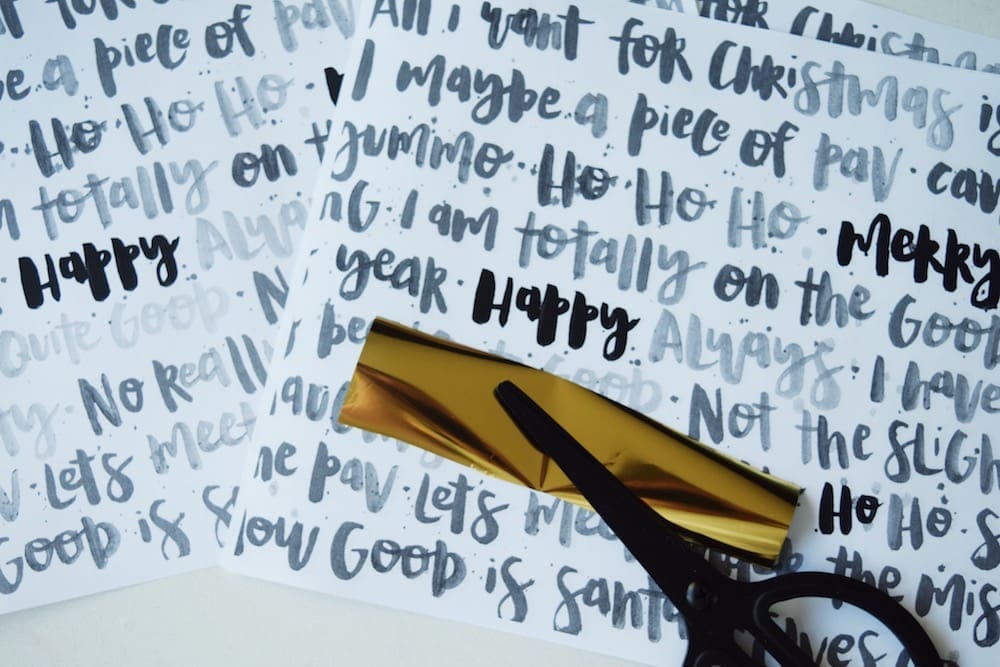 a piece of pav
Ho Ho Ho
totally on
Happy Always
Quite Good
No Really
Let's Meet
Good is
for Christm
All I want for Christmas is
I maybe a piece of pav can
Jummo · Ho Ho Ho · Merry
I am totally on the Good
year Happy Always I have
be Good Not the Sligh
Ho Ho
pav Let's Me the Mis
Good is Santa